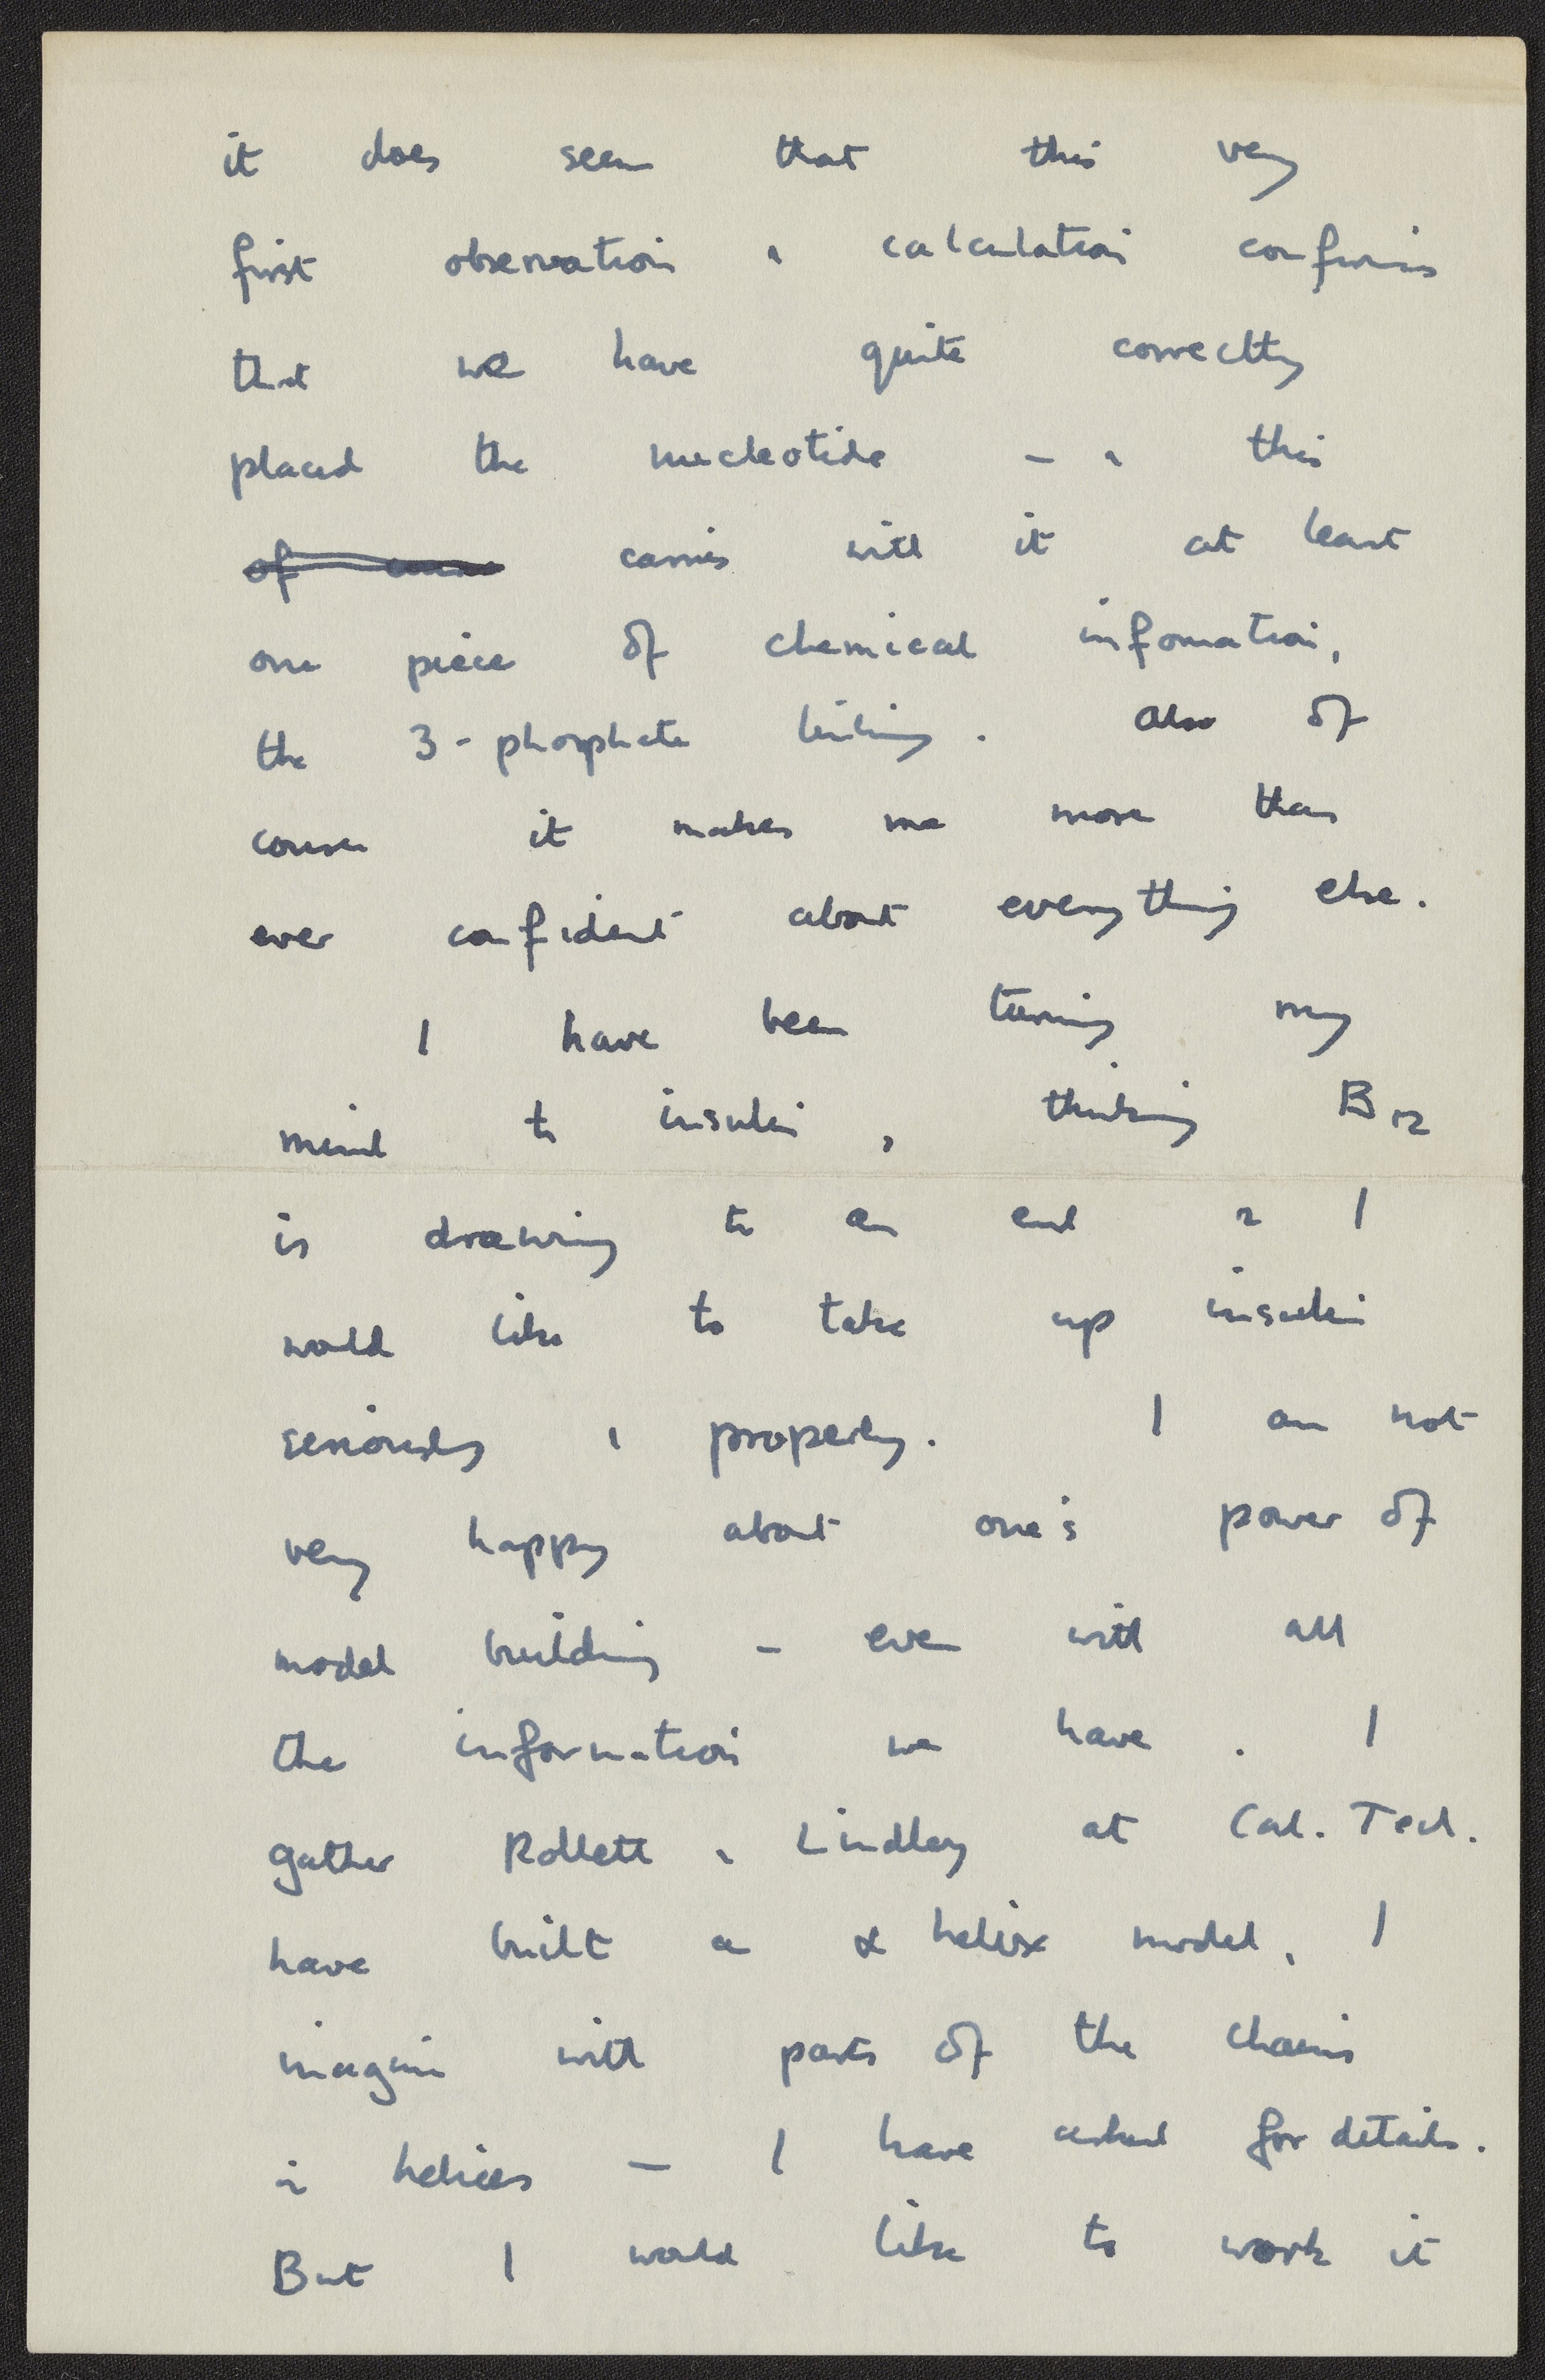 it does seem that this very
first observation & calculation confirms
that we have quite correctly
placed the nucleotide – & this
of course carries with it at least
one piece of chemical information,
the 3-phosphate linking. Also of
course it makes me more than
ever confident about everything else.
I have been turning my
mind to insulin, thinking B12
is drawing to an end & I
would like to take up insulin
seriously & properly. I am not
very happy about one's power of
model building – even with all
the information we have. I
gather Rollett & Lindley at Cal. Tech.
have built a α helix model, I
imagine with parts of the chains
in helices – I have asked for details.
But I would like to work it